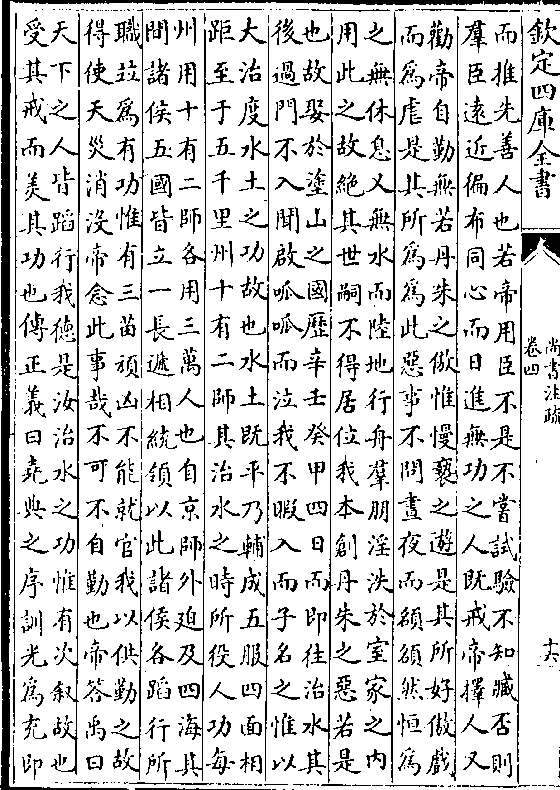 欽定四庫全書
尚書注疏
卷四
十六
而推先善人也若帝用臣不是不嘗試驗不知臧否則
羣臣遠近徧布同心而日進無功之人既戒帝擇人又
勸帝自勤無若丹朱之傲惟慢褻之遊是其所好傲戲
而為虐是其所為為此惡事不問晝夜而頟頟然恒為
之無休息又無水而陸地行舟羣朋淫泆於室家之內
用此之故絶其世嗣不得居位我本創丹朱之惡若是
也故娶於塗山之國歷辛壬癸甲四日而即往治水其
後過門不入聞啟呱呱而泣我不暇入而子名之惟以
大治度水土之功故也水土既平乃輔成五服四面相
距至于五千里州十有二師其治水之時所役人功每
州用十有二師各用三萬人也自京師外迫及四海其
間諸侯五國皆立一長遞相統領以此諸侯各蹈行所
職竝為有功惟有三苗頑凶不能就官我以供勤之故
得使天災消沒帝念此事哉不可不自勤也帝答禹曰
天下之人皆蹈行我德是汝治水之功惟有次叙故也
受其戒而美其功也傳正義曰堯典之序訓光為充即